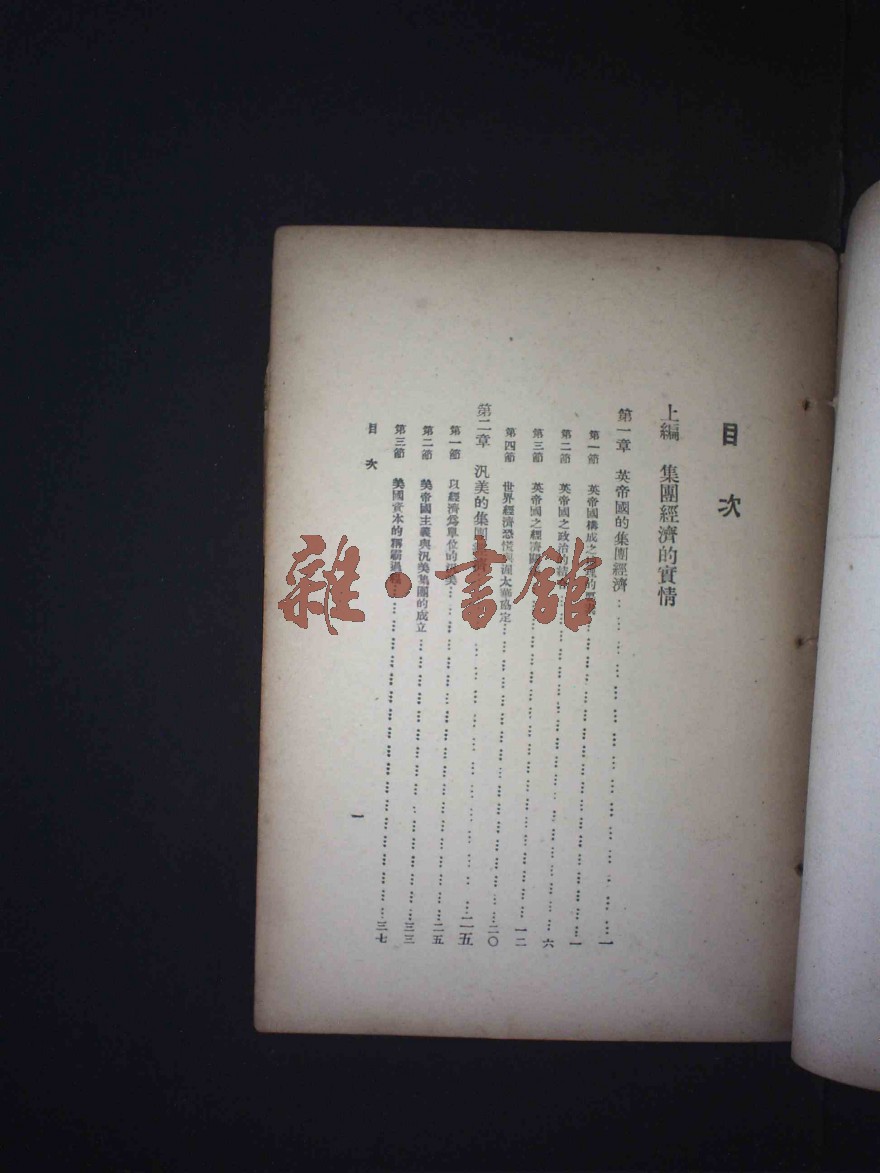 目次
上編 集團經濟的實情
第一章 英帝國的集團經濟……一
第一節 英帝國構成之……一
第二節 英帝國之政治的……六
第三節 英帝國之經濟……一二
第四節 世界經濟恐慌與渥太華協定……二〇
第二章 汎美的集團經濟……二五
第一節 以經濟爲單位的汎美……二五
第二節 美帝國主義與汎美集團的成立……三三
第三節 美國資本的稱霸過程……三七
目次
一
雜·書館